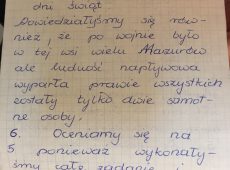 dni świąt
Dowiedziałyśmy się rów-
nież, że po wojnie było
w tej wsi wielu Mazurów
ale ludność napływowa
wyparła prawie wszystkich
zostały tylko dwie samot-
ne osoby.
6. Oceniamy się na
5 ponieważ wykonały-
śmy całe zadanie i